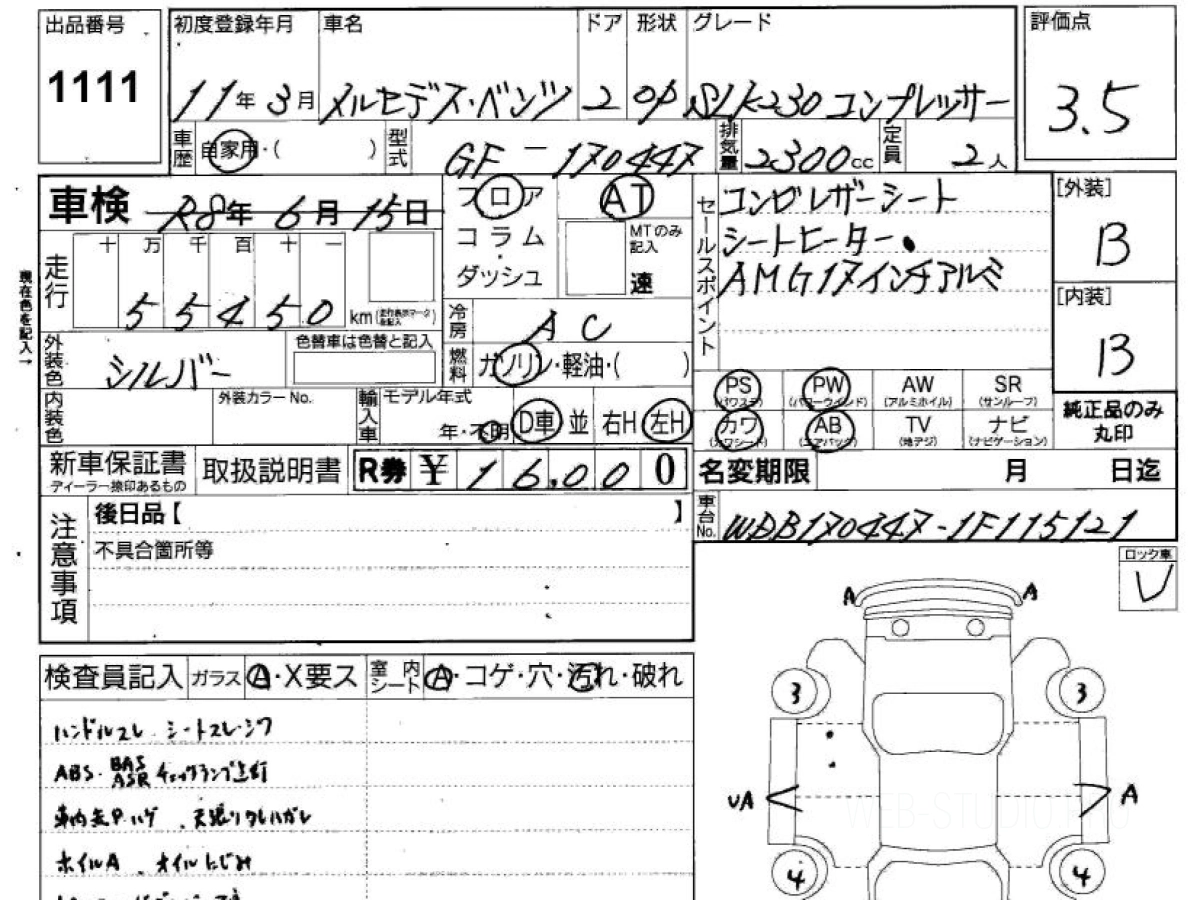 出品番号 1111
初度登録年月 11年 3月
車名 メルセデス・ベンツ
ドア 2
形状 OP
グレード SLK230 コンプレッサー
評価点 3.5
車歴 自家用・( )
型式 GF-170447
排気量 2300cc
定員 2人
車検 R8年 6月 15日
フロア
コラム
ダッシュ
AT
MTのみ記入
速
セールスポイント
コンビレザーシート
シートヒーター
AMG17インチアルミ
[外装] B
[内装] B
走行 十 万 千 百 十 一
55450 km(走行表示マークを記入)
現在色を記入→
外装色 シルバー
色替車は色替と記入
冷房 AC
燃料 ガソリン・軽油・( )
内装色
外装カラーNo.
輸入車
モデル年式
年・不明
D車 並 右H 左H
PS (パワステ)
PW (パワーウインド)
AW (アルミホイル)
SR (サンルーフ)
カワ (カワシート)
AB (エアバッグ)
TV (地デジ)
ナビ (ナビゲーション)
純正品のみ
丸印
新車保証書
ディーラー捺印あるもの
取扱説明書
R券 ¥ 16,000
名変期限 月 日迄
車台No. WDB170447-1F115121
注意事項
後日品【 】
不具合箇所等
ロック車
レ
検査員記入
ガラス A・X要ス
室内シート A・コゲ・穴・汚れ・破れ
ハンドルスレ シートスレ・シワ
ABS・BAS ASR チェックランプ点灯
ホイルA、オイルにじみ
A A
3 3
UA A
4 4
WEB-STUDIO.PRO